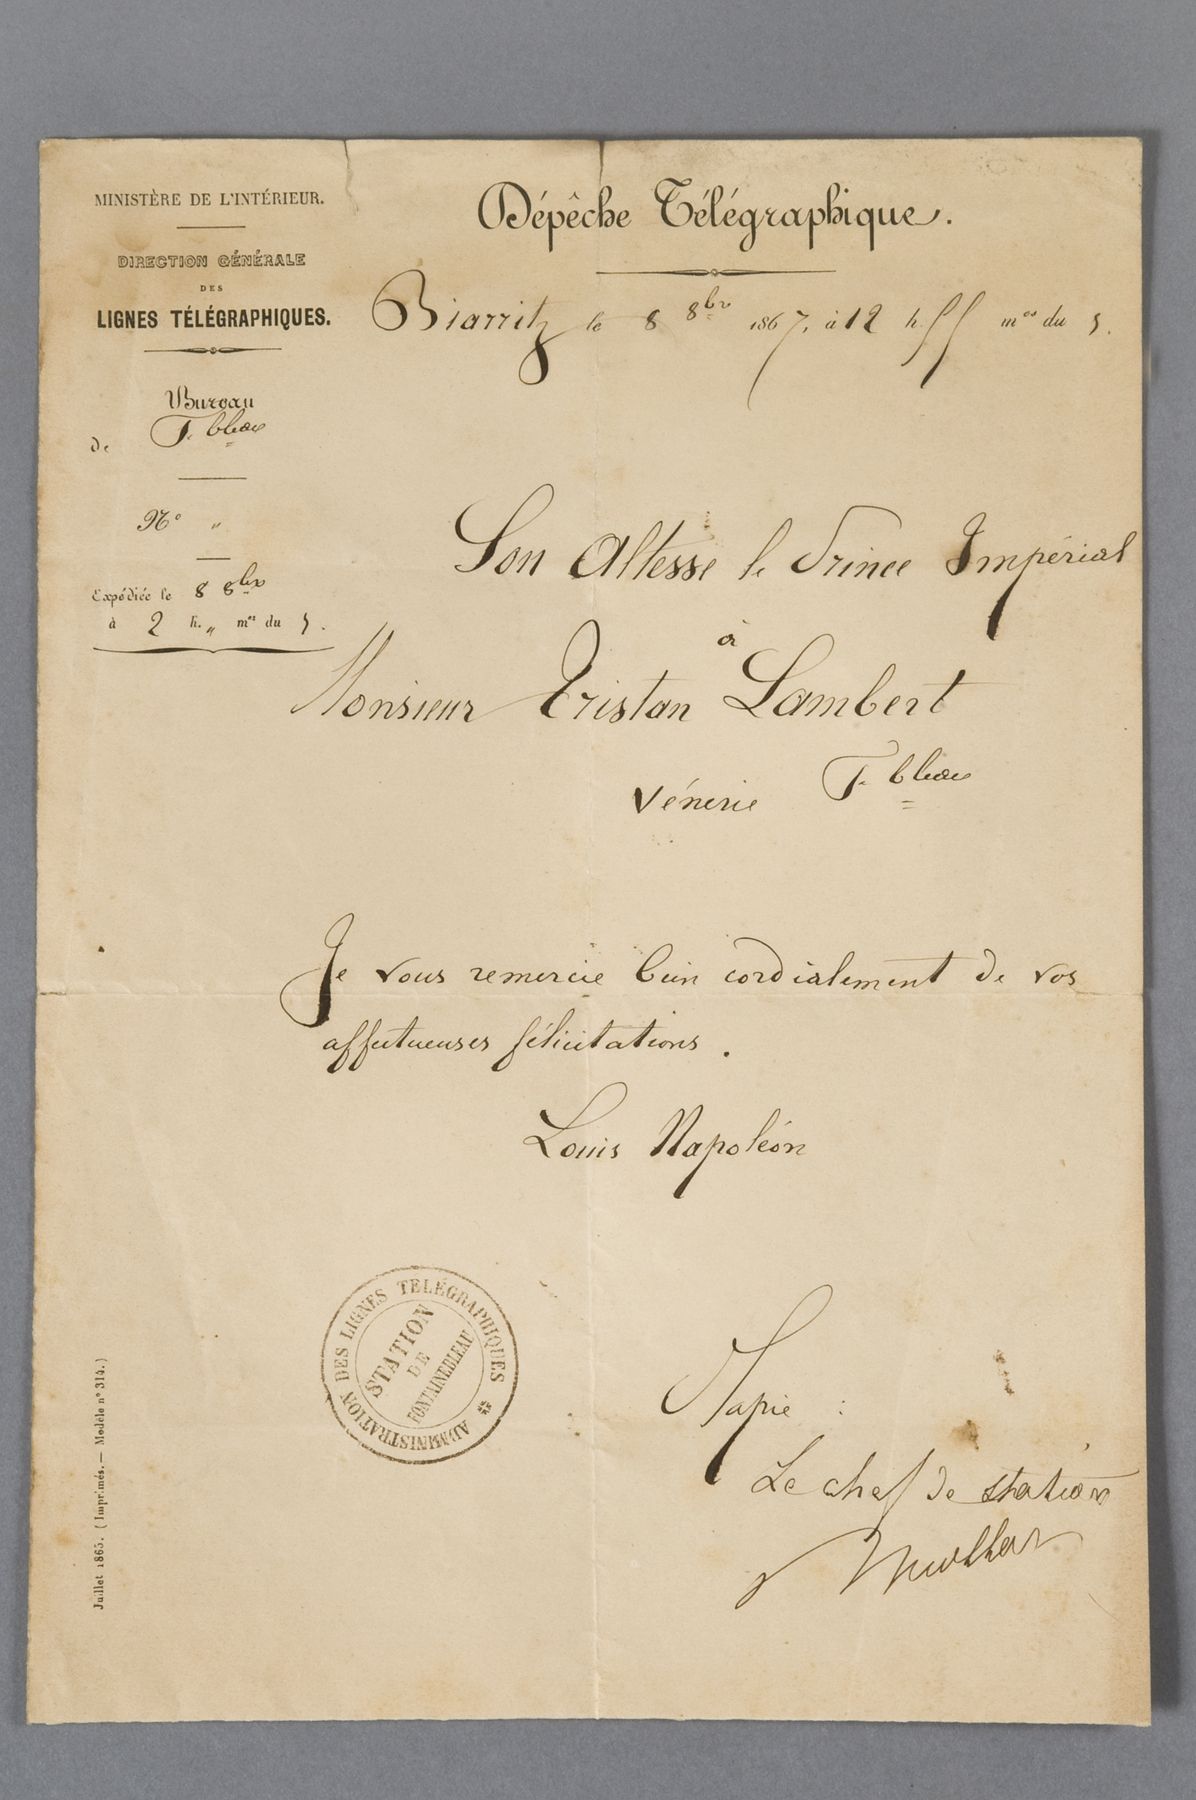 MINISTÈRE DE L'INTÉRIEUR.
DIRECTION GÉNÉRALE
DES
LIGNES TÉLÉGRAPHIQUES.
Dépêche Télégraphique.
Biarritz le 8 8bre 1867, à 12 h. 55 mes du s.
Bureau
de F. bleau
No "
Expédiée le 8 8bre
à 2 h. " mes du s.
Son Altesse le Prince Impérial
à
Monsieur Tristan Lambert
Vénerie F. bleau
Je vous remercie bien cordialement de vos
affectueuses félicitations.
Louis Napoléon
ADMINISTRATION DES LIGNES TÉLÉGRAPHIQUES
STATION
DE
FONTAINEBLEAU
:
Le chef de station
Juillet 1865. (Imprimés. — Modèle no 314.)